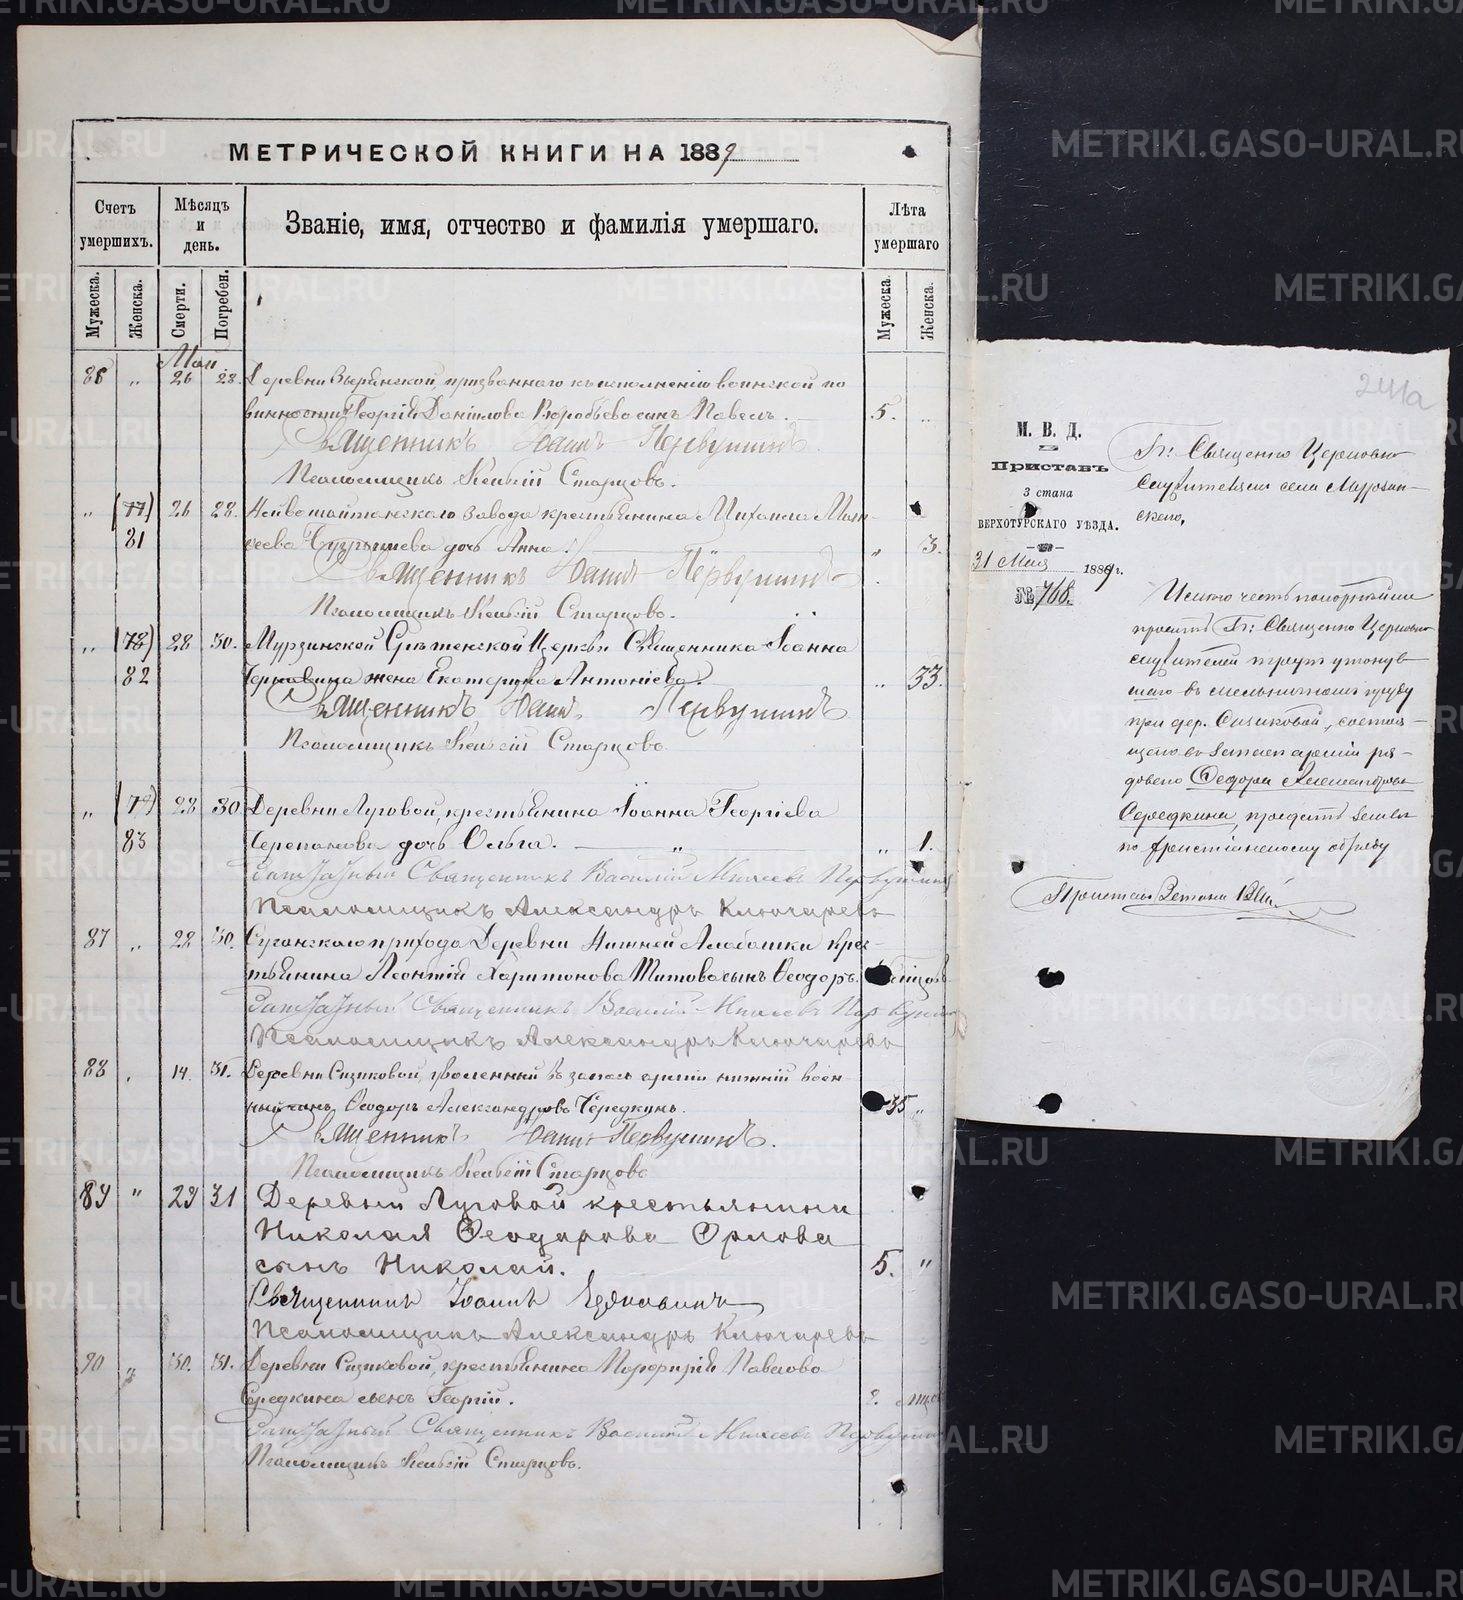 МЕТРИЧЕСКОЙ КНИГИ НА 1889
Счетъ умершихъ.
Мѣсяцъ и день.
Званіе, имя, отчество и фамилія умершаго.
Лѣта умершаго
Мужеска.
Женска.
Смерти.
Погребен.
Мужеска
Женска.
Май
86 „ 26 28. Деревни Вырянской, призваннаго къ исполненію воинской по
винности Георгія Данілова Воробьева сынъ Павелъ. 5. „
Священникъ Іоаннъ Первушинъ
Псаломщикъ Старцовъ.
„ (77) 26 28. Нейвошайтанскаго завода крестьянина Михаила Мат-
81 дочь Анна. „ 3.
Священникъ Іоаннъ Первушинъ
Псаломщикъ Старцовъ.
„ (78) 28 30. Мурзинской Срѣтенской Церкви Священника Іоанна
82 жена Екатерина Антоніева. „ 33.
Священникъ Іоаннъ Первушинъ
Псаломщикъ Старцовъ
„ (79) 28 30 Деревни Луговой, крестьянина Іоанна Георгіева
83 Черепанова дочь Ольга. „ „ 1.
Заштатный Священникъ Василій Первушинъ
Псаломщикъ Александръ Ключаревъ
87 „ 28 30. прихода Деревни Нижней Алабашки крес-
тьянина Леонтія Харитонова Титова сынъ Ѳеодоръ.
Заштатный Священникъ Василій Первушинъ
Псаломщикъ Александръ Ключаревъ
88 14. 31. Деревни Сизиковой, уволенный въ запасъ арміи нижній воен-
ный чинъ Ѳеодоръ Александровъ Середкинъ. 35 „
Священникъ Іоаннъ Первушинъ.
Псаломщикъ Старцовъ
89 „ 29 31 Деревни Луговой крестьянина
Николая Ѳеодорова Орлова
сынъ Николай. 5. „
Священникъ Іоаннъ
Псаломщикъ Александръ Ключаревъ
90 „ 30. 31. Деревни Сизиковой, крестьянина Порфирія Павлова
Середкина сынъ Георгій. 2.
Заштатный Священникъ Василій Первушинъ
Псаломщикъ Старцовъ.
241а
М. В. Д.
Приставъ
3 стана
ВЕРХОТУРСКАГО УѢЗДА.
31 Мая 1889 г.
№ 768.
Гг. Священно Церковно
служителямъ села Мурзин-
скаго.
Имѣю честь покорнѣйше
просить Гг. Священно Церковно
служителей трупъ утонув
шаго въ мельничномъ пруду
при дер. Сизиковой, состоя-
щаго въ запасѣ арміи ря-
доваго Ѳедора Александрова
Середкина, предать землѣ
по христіанскому обряду
Приставъ
METRIKI.GASO-URAL.RU